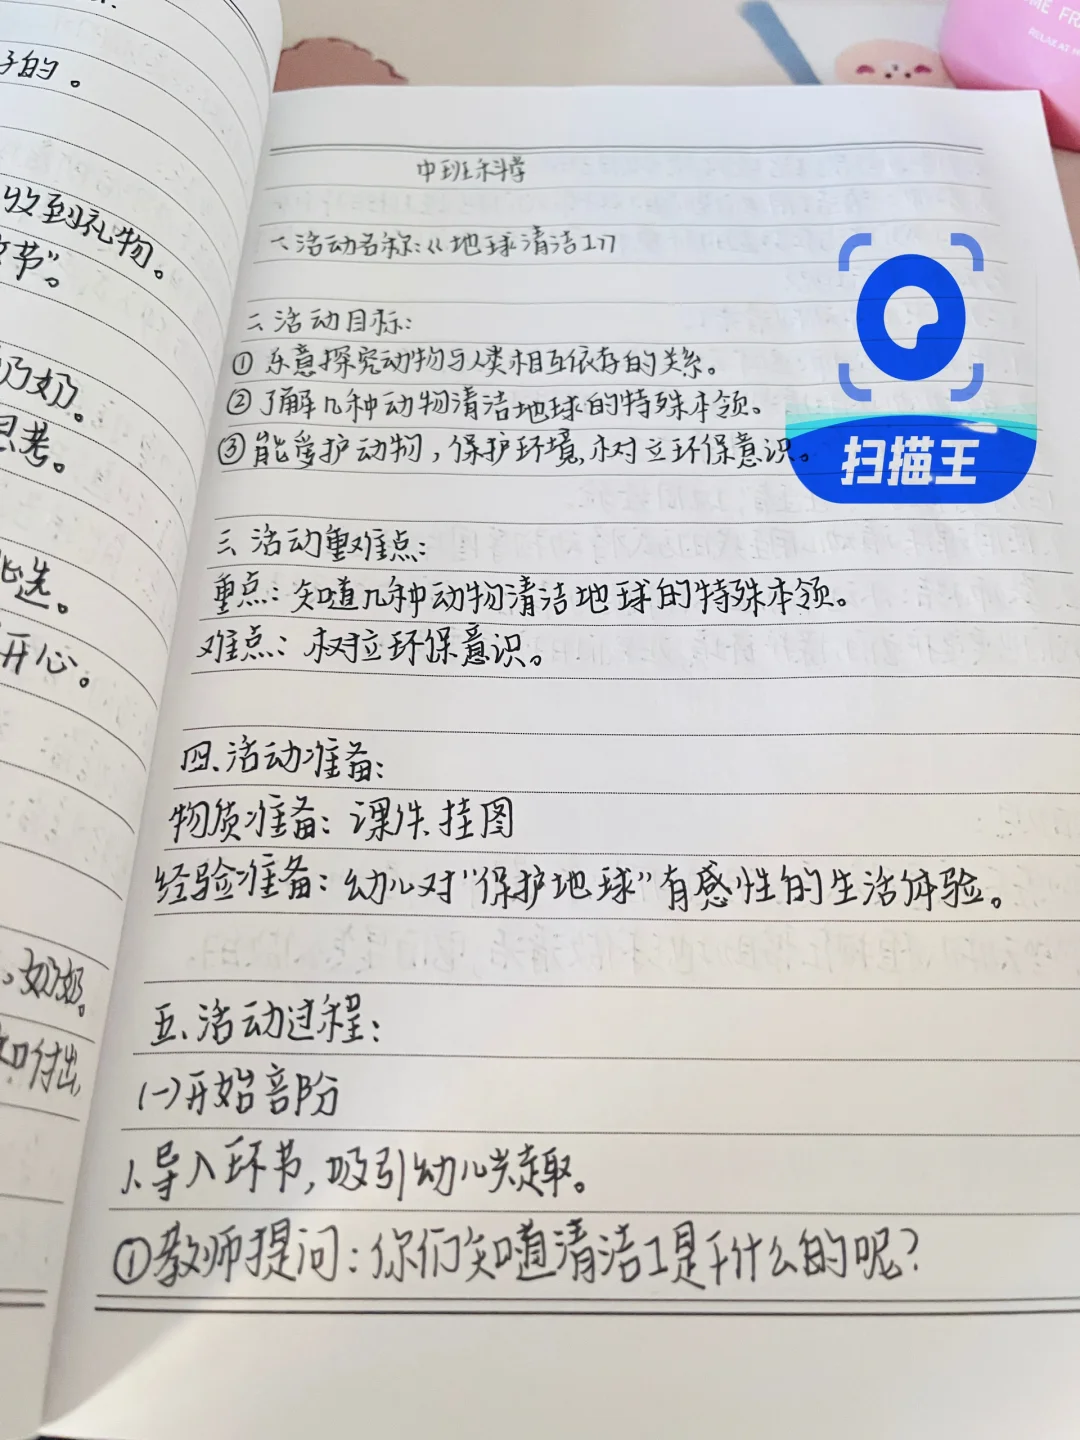 子的。
收到礼物。
节”。
奶奶。
思考。
选。
开心。
，奶奶。
和付出，
中班科学
一、活动名称:《地球清洁工》
二、活动目标:
① 乐意探究动物与人类相互依存的关系。
② 了解几种动物清洁地球的特殊本领。
③ 能爱护动物,保护环境,树立环保意识。
三、活动重难点:
重点: 知道几种动物清洁地球的特殊本领。
难点: 树立环保意识。
四、活动准备:
物质准备: 课件、挂图
经验准备: 幼儿对“保护地球”有感性的生活体验。
五、活动过程:
(一)开始部份
1.导入环节,吸引幼儿兴趣。
①教师提问:你们知道清洁工是干什么的呢?
扫描王
ME FR
RELAX AT